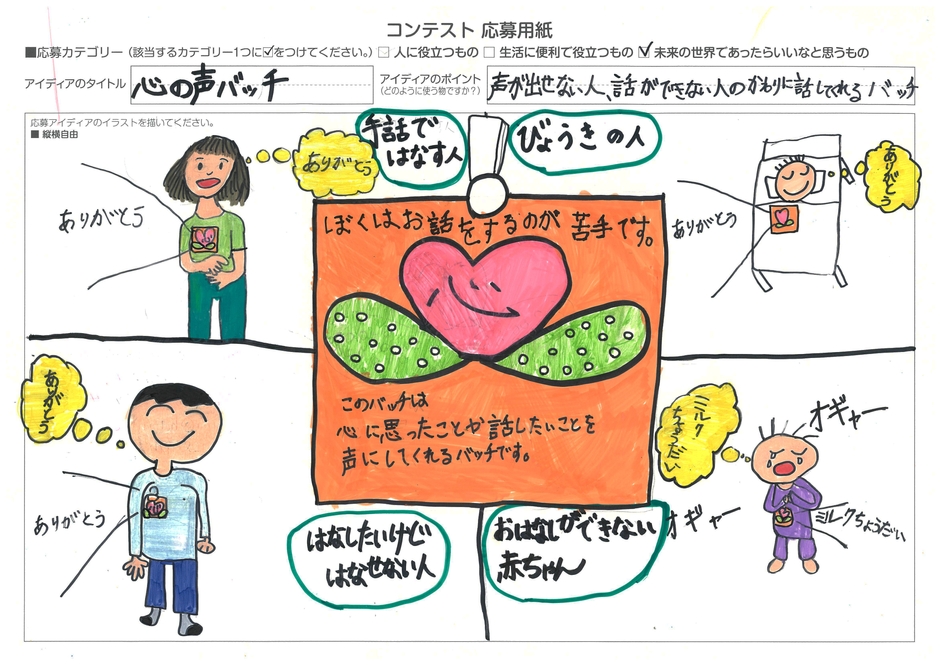 コンテスト 応募用紙
■応募カテゴリー（該当するカテゴリー1つに☑をつけてください。）□ 人に役立つもの □ 生活に便利で役立つもの ☑ 未来の世界であったらいいなと思うもの
アイディアのタイトル
心の声バッチ
アイディアのポイント
（どのように使う物ですか？）
声が出せない人、話ができない人のかわりに話してくれるバッチ
応募アイディアのイラストを描いてください。
■ 縦横自由
ありがとう
ありがとう
手話で
はなす人
びょうきの人
ありがとう
ありがとう
ぼくはお話をするのが苦手です。
このバッチは
心に思ったことや話したいことを
声にしてくれるバッチです。
ありがとう
ありがとう
はなしたいけど
はなせない人
おはなしができない
赤ちゃん
ミルク
ちょうだい
オギャー
オギャー
ミルクちょうだい